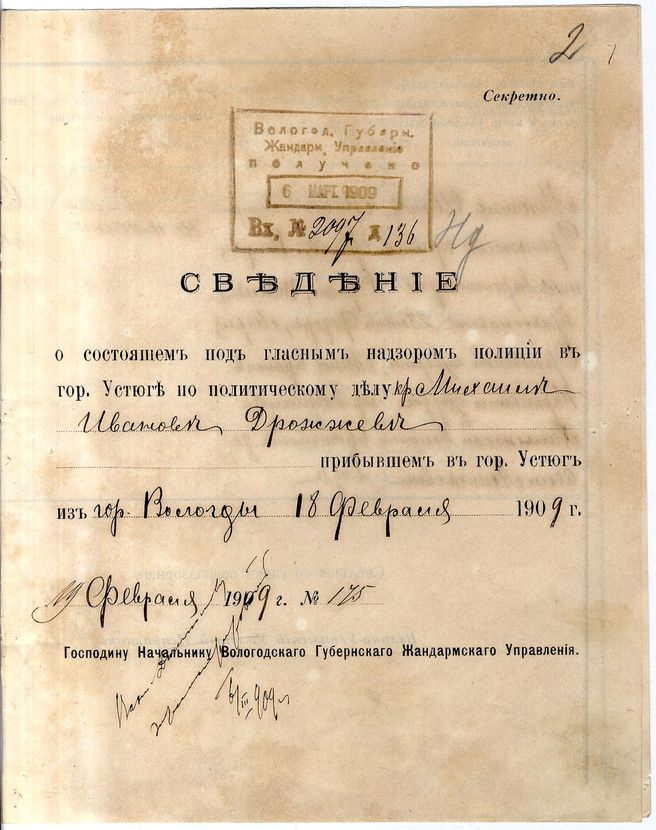 2
Секретно.
Вологод. Губерн.
Жандарм. Управленіе
получено
6 МАРТ 1909
Вх. № 2097 д 136
СВѢДѢНІЕ
о состоящемъ подъ гласнымъ надзоромъ полиціи въ
гор. Устюгѣ по политическому дѣлу кр. Михаилѣ
Ивановѣ Дрожжевѣ
прибывшемъ въ гор. Устюгъ
изъ гор. Вологды 18 Февраля 1909 г.
19 Февраля 1909 г. № 175
Господину Начальнику Вологодскаго Губернскаго Жандармскаго Управленія.
6/III 909 г.